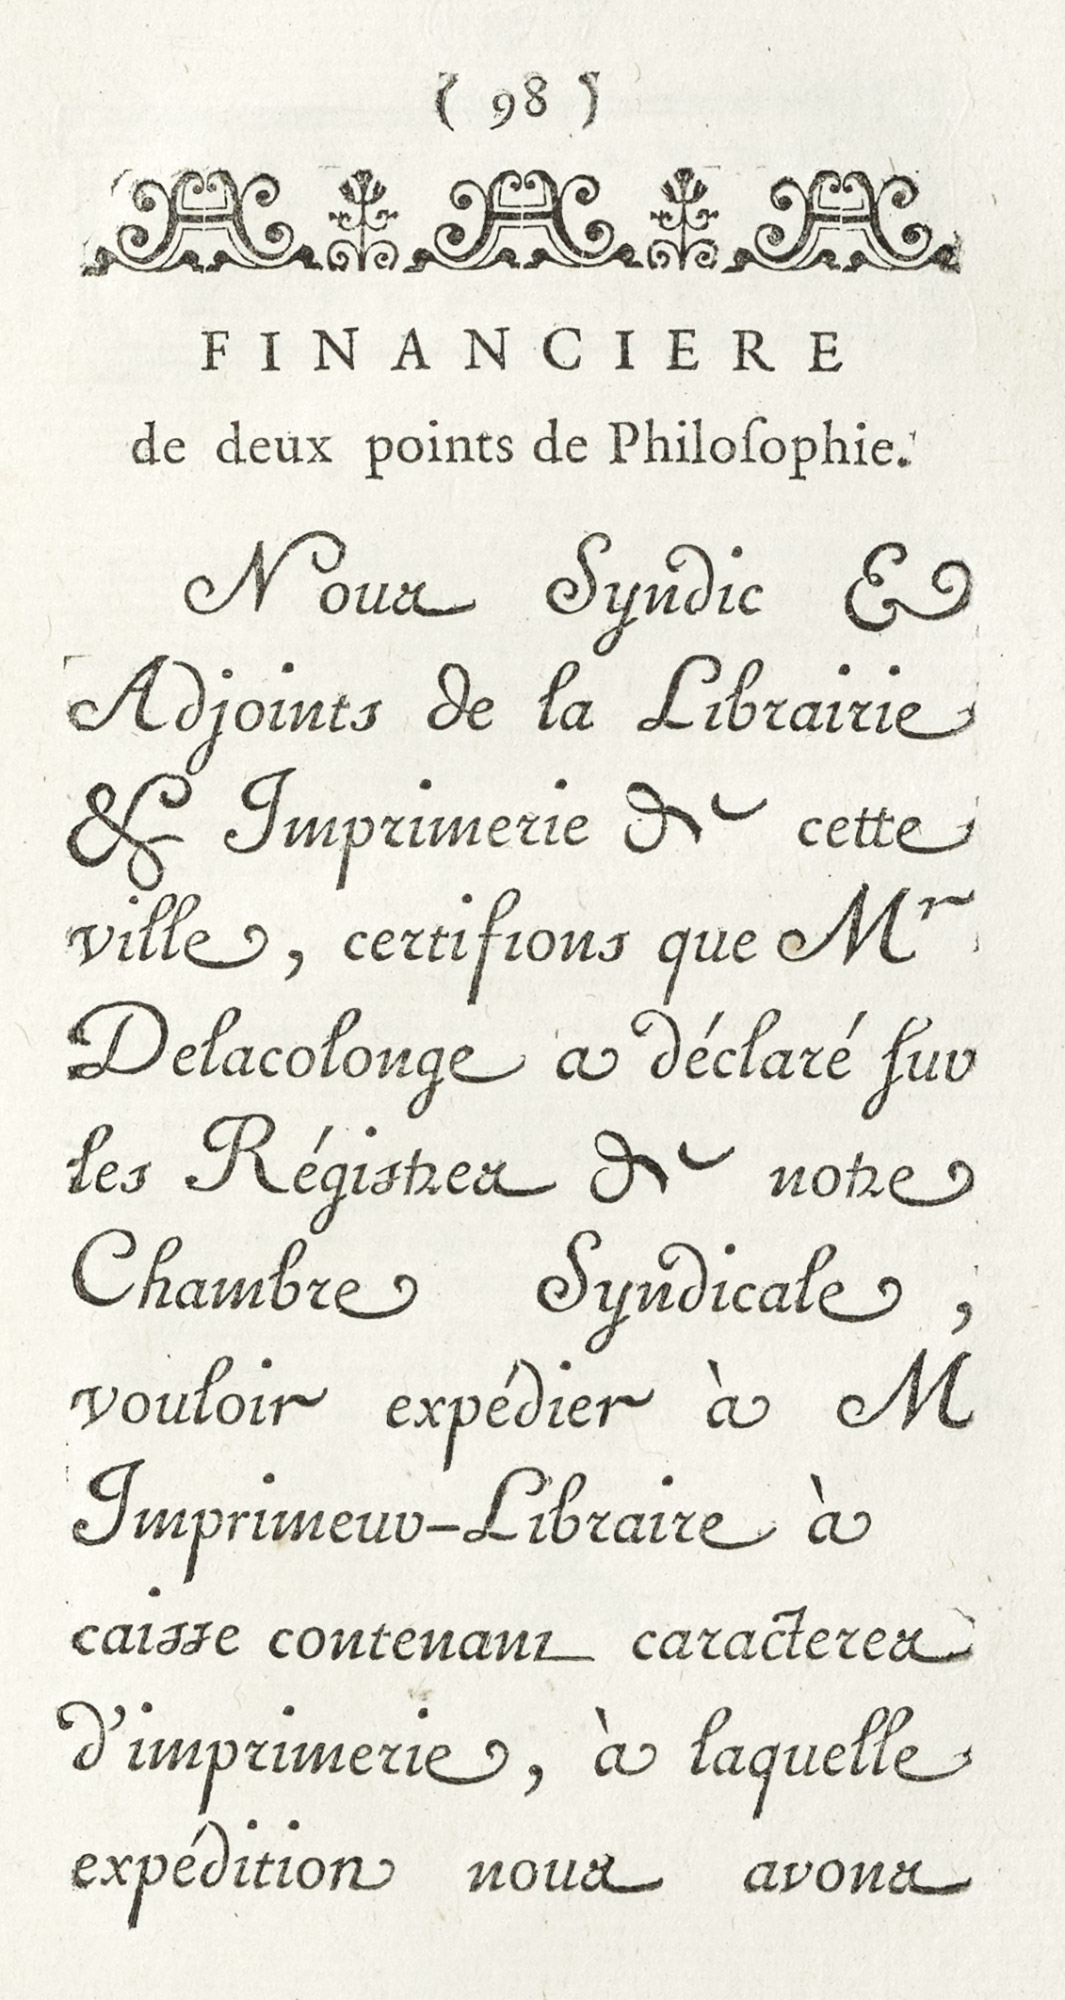 ( 98 )
FINANCIERE
de deux points de Philoſophie.
Nous Syndic &
Adjoints de la Librairie
& Imprimerie de cette
ville, certifions que Mr
Delacolonge a déclaré ſur
les Régistres de notre
Chambre Syndicale,
vouloir expédier à M
Imprimeur-Libraire à
caisse contenant caracteres
d'imprimerie, à laquelle
expédition nous avons